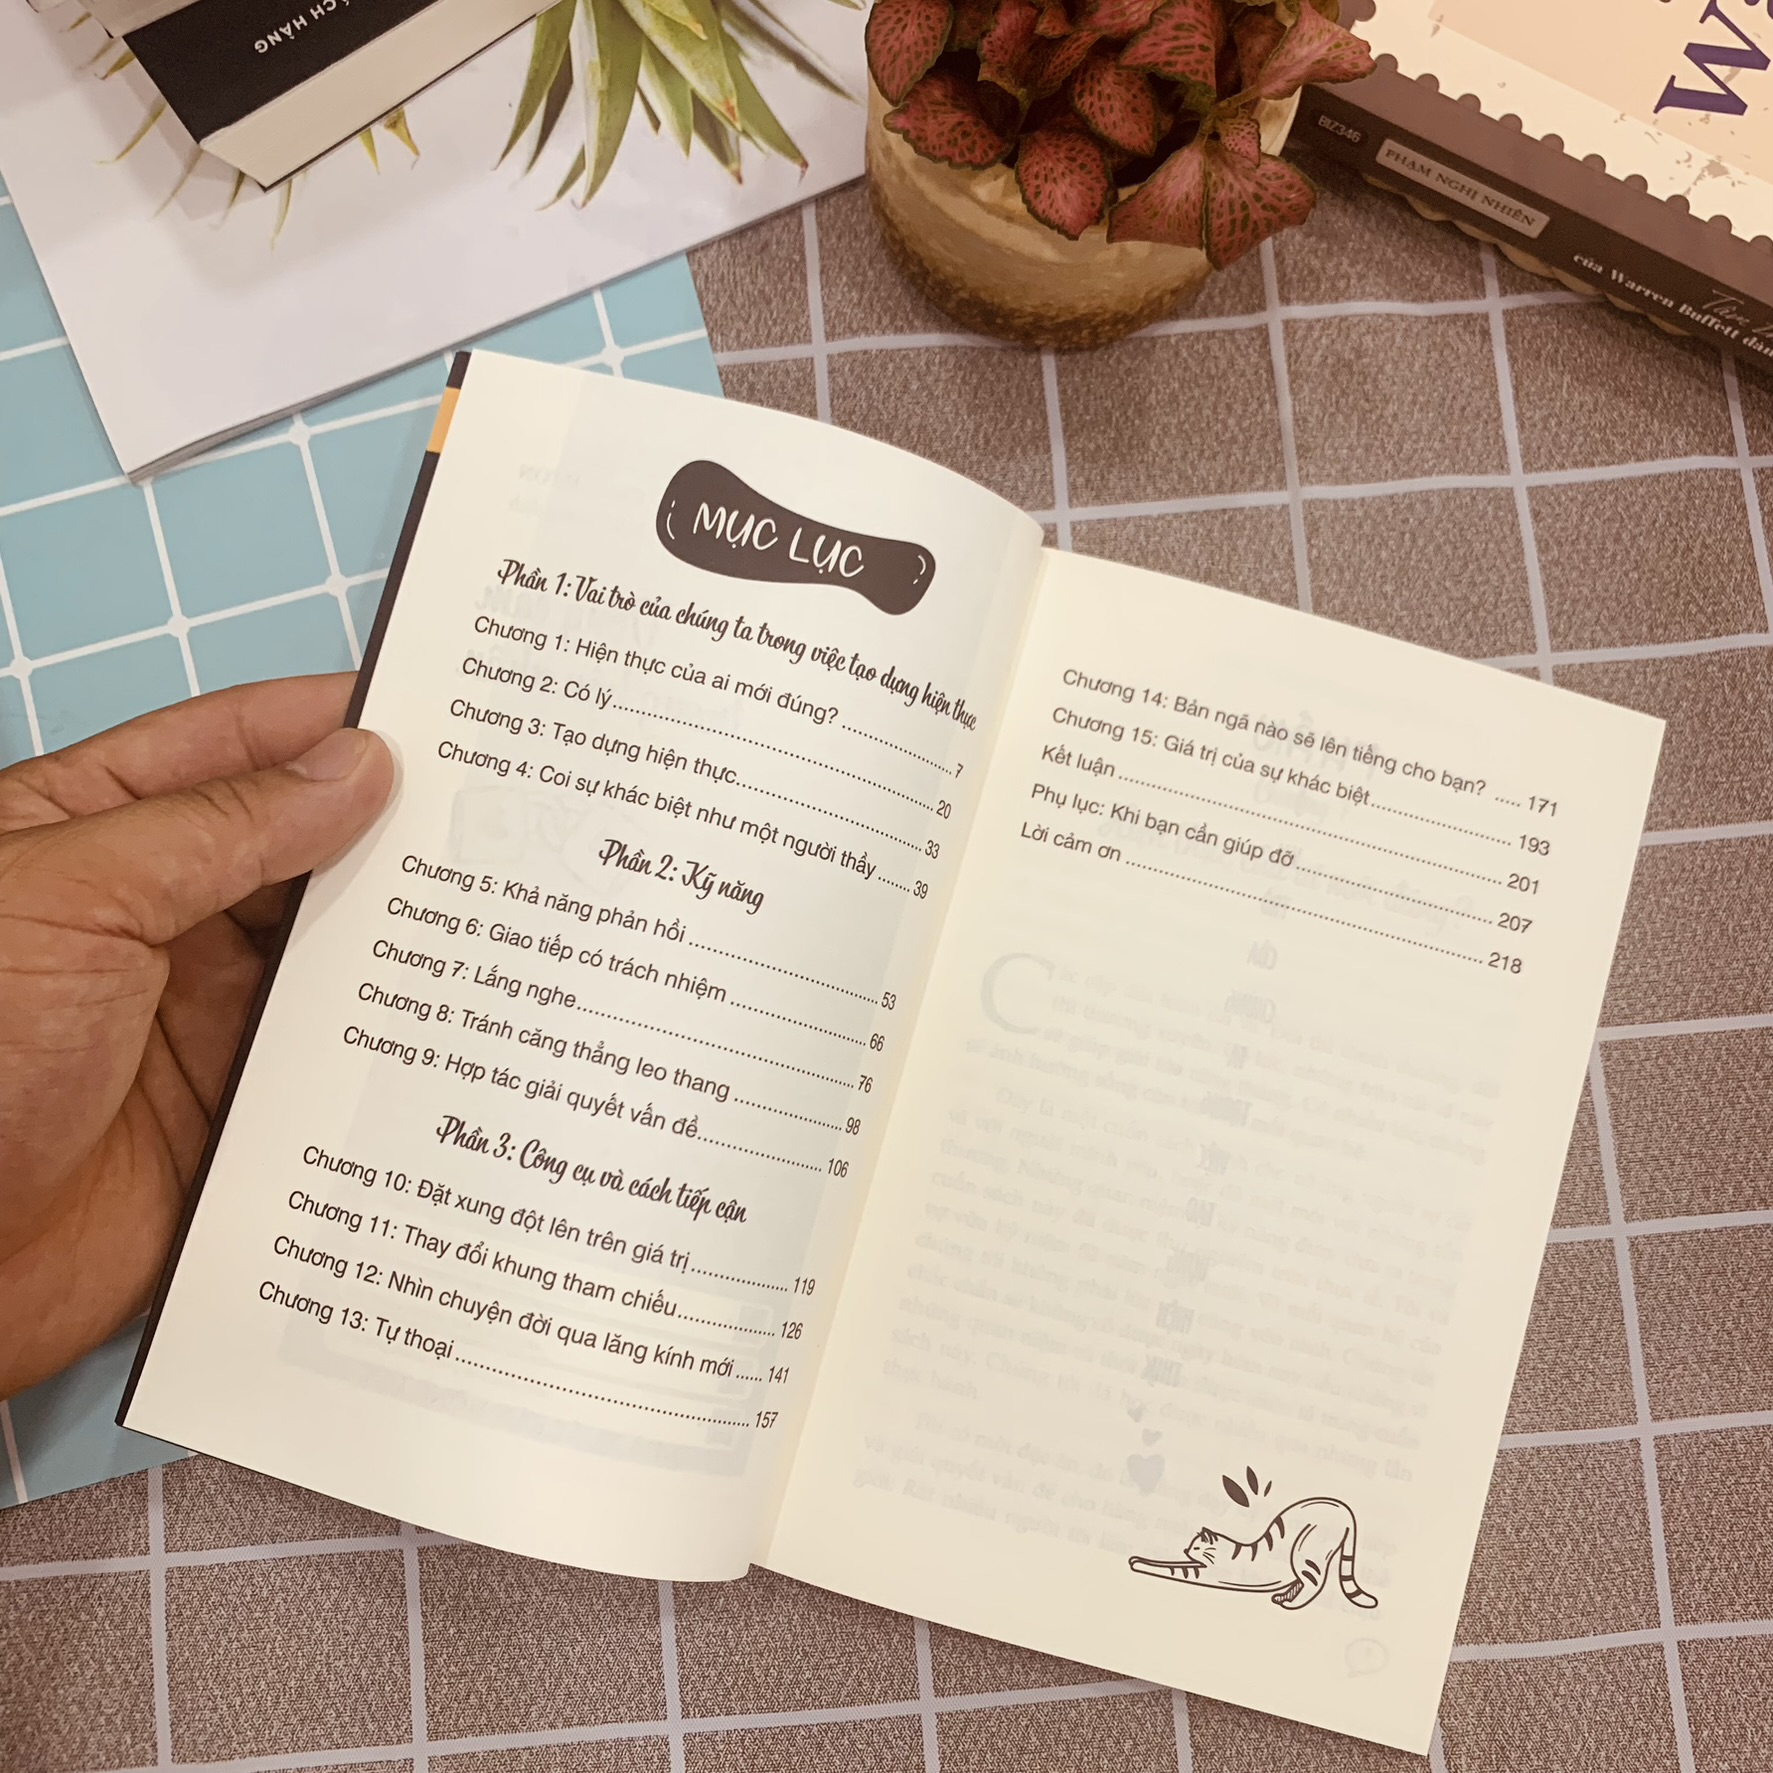 ÁCH HÀNG
BIZ346
PHẠM NGHỊ NHIÊN
của Warren Buffett
MỤC LỤC
Phần 1: Vai trò của chúng ta trong việc tạo dựng hiện thực
Chương 1: Hiện thực của ai mới đúng? ................ 7
Chương 2: Có lý ................ 20
Chương 3: Tạo dựng hiện thực ................ 33
Chương 4: Coi sự khác biệt như một người thầy ....... 39
Phần 2: Kỹ năng
Chương 5: Khả năng phản hồi ................ 53
Chương 6: Giao tiếp có trách nhiệm ................ 66
Chương 7: Lắng nghe ................ 76
Chương 8: Tránh căng thẳng leo thang ................ 98
Chương 9: Hợp tác giải quyết vấn đề ................ 106
Phần 3: Công cụ và cách tiếp cận
Chương 10: Đặt xung đột lên trên giá trị ................ 119
Chương 11: Thay đổi khung tham chiếu ................ 126
Chương 12: Nhìn chuyện đời qua lăng kính mới ...... 141
Chương 13: Tự thoại ................ 157
Chương 14: Bản ngã nào sẽ lên tiếng cho bạn? ..... 171
Chương 15: Giá trị của sự khác biệt ................ 193
Kết luận ................ 201
Phụ lục: Khi bạn cần giúp đỡ ................ 207
Lời cảm ơn ................ 218